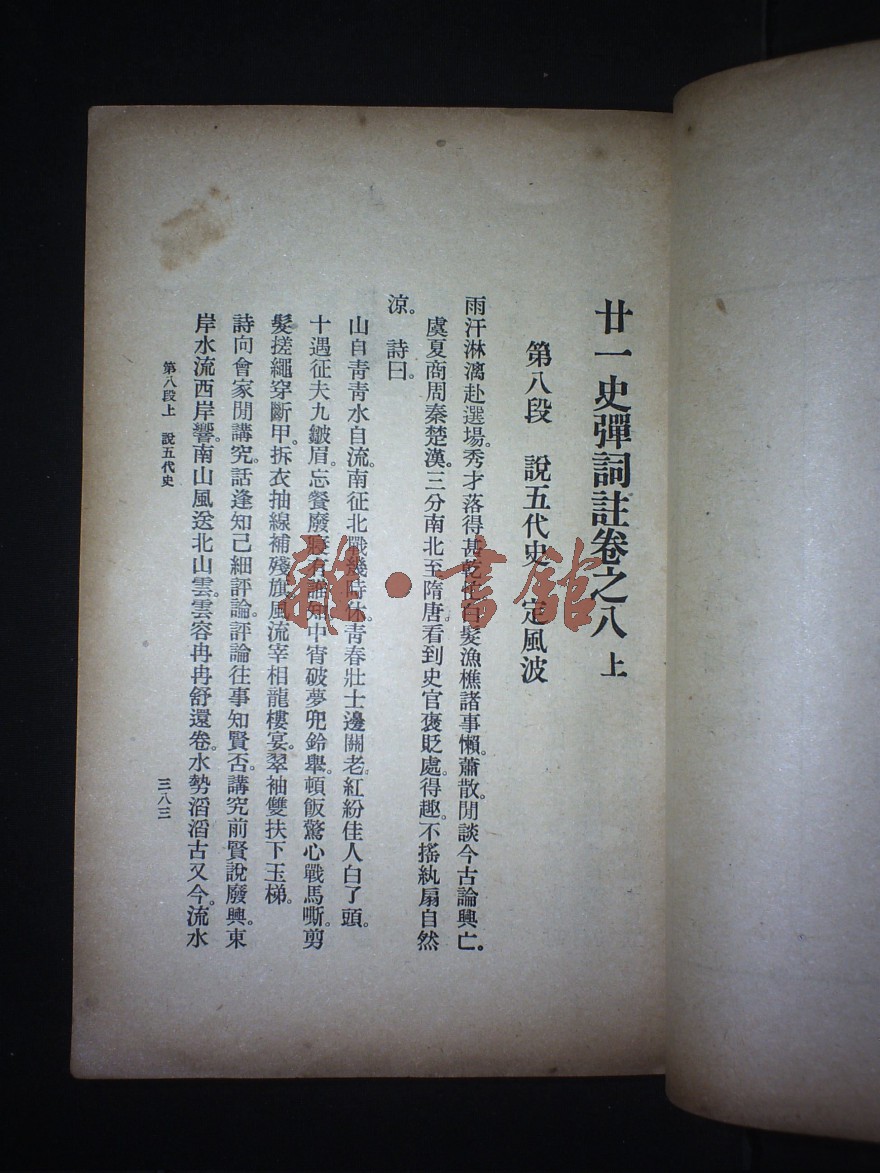 廿一史彈詞註卷之八 上
第八段 說五代史 定風波
雨汗淋漓赴選場。秀才落得甚乾忙。白髮漁樵諸事懶。蕭散。閒談今古論興亡。
虞夏商周秦楚漢。三分南北至隋唐。看到史官褒貶處。得趣。不搖紈扇自然
涼。 詩曰。
山自青青水自流。南征北戰幾時休。青春壯士邊關老。紅紛佳人白了頭。
十遇征夫九皺眉。忘餐廢寢有誰知。中宵破夢兜鈴舉。頓飯驚心戰馬嘶。剪
髮搓繩穿斷甲。拆衣抽線補殘旗。風流宰相龍樓宴。翠袖雙扶下玉梯。
詩向會家閒講究。話逢知己細評論。評論往事知賢否。講究前賢說廢興。東
岸水流西岸響。南山風送北山雲。雲容冉冉舒還卷。水勢滔滔古又今。流水
第八段上 說五代史
三八三
雜·書館